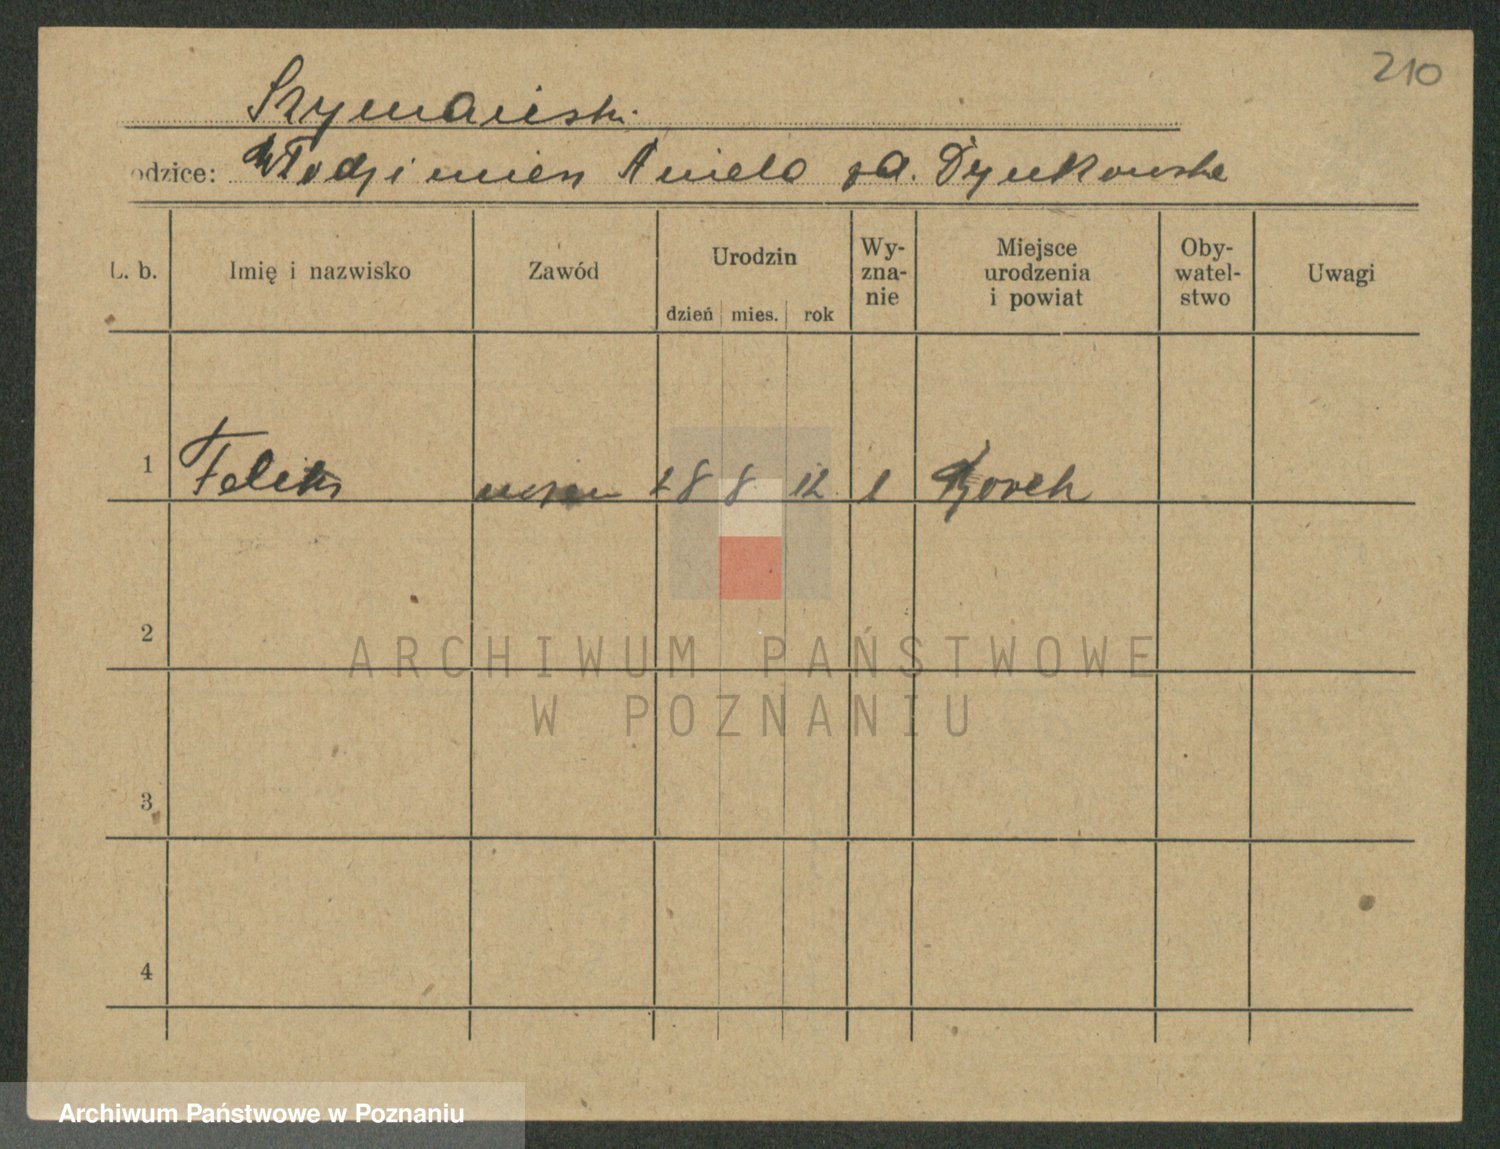 210
Szymański
odzice: Włodzimierz Aniela zd. Dynkowska
L. b.
Imię i nazwisko
Zawód
Urodzin
dzień mies. rok
Wy-
zna-
nie
Miejsce
urodzenia
i powiat
Oby-
watel-
stwo
Uwagi
1 Feliks 28 8 12
2
3
4
ARCHIWUM PAŃSTWOWE
W POZNANIU
Archiwum Państwowe w Poznaniu